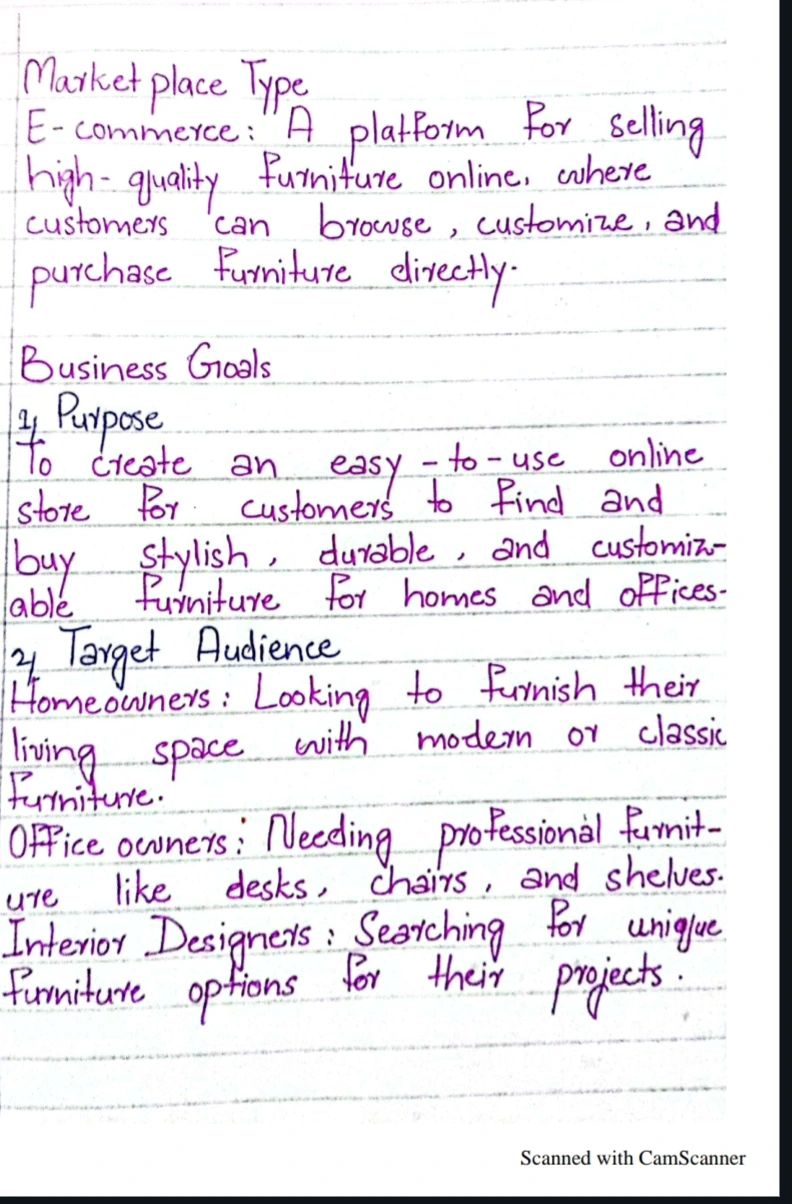 Market place Type
E-commerce: A platform for selling
high-quality furniture online, where
customers can browse, customize, and
purchase furniture directly.
Business Goals
1) Purpose
To create an easy-to-use online
store for customers to find and
buy stylish, durable, and customiz-
able furniture for homes and offices.
2) Target Audience
Homeowners: Looking to furnish their
living space with modern or classic
furniture.
Office owners: Needing professional furnit-
ure like desks, chairs, and shelves.
Interior Designers: Searching for unique
furniture options for their projects.
Scanned with CamScanner